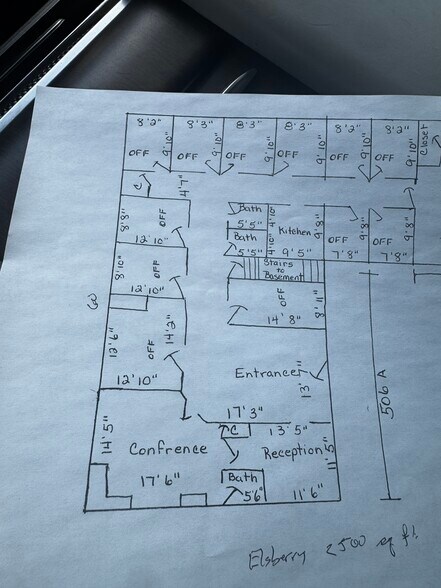 8'2" 8'3" 8'3" 8'3" 8'2" 8'2"
9'10" 9'10" 9'10" 9'10" 9'10" 9'10"
OFF OFF OFF OFF OFF OFF
Closet
C 4'7"
8'8" OFF
12'10"
Bath
5'5" 4'10"
Bath
5'5" 4'10"
Kitchen
9'5" 9'8"
OFF 9'8"
7'8"
OFF 9'8"
7'8"
8'10" OFF
12'10"
Stairs
to
Basement
OFF 8'11"
14'8"
12'6" OFF 14'2"
12'10"
Entrance
13'
17'3"
506 A
14'5"
Confrence
17'6"
C 13'5"
Reception
11'5"
Bath
5'6" 11'6"
Elsberry 2500 sq ft.